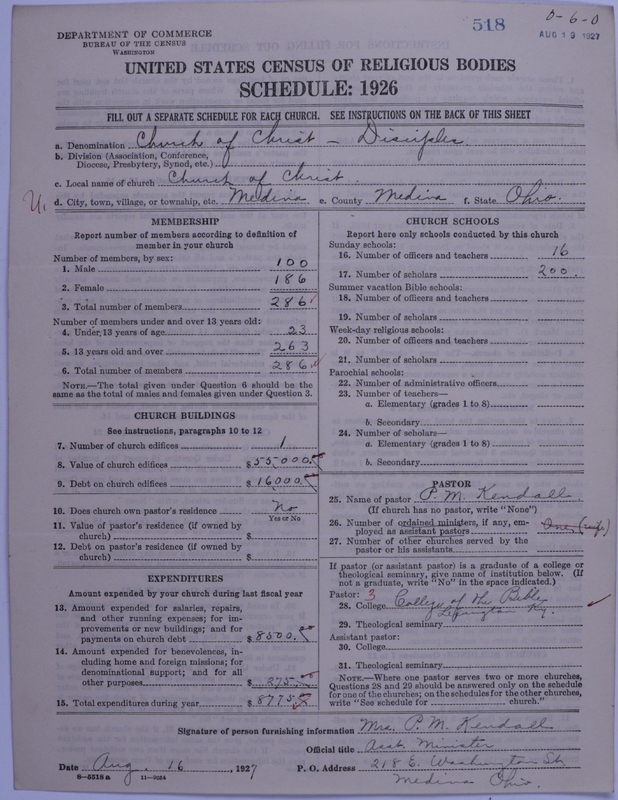 518
0-6-0
AUG 19 1927
DEPARTMENT OF COMMERCE
BUREAU OF THE CENSUS
WASHINGTON
UNITED STATES CENSUS OF RELIGIOUS BODIES
SCHEDULE: 1926
FILL OUT A SEPARATE SCHEDULE FOR EACH CHURCH. SEE INSTRUCTIONS ON THE BACK OF THIS SHEET
a. Denomination Church of Christ – Disciples
b. Division (Association, Conference,
Diocese, Presbytery, Synod, etc.)
c. Local name of church Church of Christ
d. City, town, village, or township, etc. Medina e. County Medina f. State Ohio.
MEMBERSHIP
Report number of members according to definition of
member in your church
Number of members, by sex:
1. Male 100
2. Female 186
3. Total number of members 286
Number of members under and over 13 years old:
4. Under 13 years of age 23
5. 13 years old and over 263
6. Total number of members 286
NOTE.—The total given under Question 6 should be the
same as the total of males and females given under Question 3.
CHURCH BUILDINGS
See instructions, paragraphs 10 to 12
7. Number of church edifices 1
8. Value of church edifices $55,000.
9. Debt on church edifices $16000.
10. Does church own pastor's residence No
Yes or No
11. Value of pastor's residence (if owned by
church) $
12. Debt on pastor's residence (if owned by
church) $
EXPENDITURES
Amount expended by your church during last fiscal year
13. Amount expended for salaries, repairs,
and other running expenses; for im-
provements or new buildings; and for
payments on church debt $8500.
14. Amount expended for benevolences, in-
cluding home and foreign missions; for
denominational support; and for all
other purposes $275.
15. Total expenditures during year $8775
CHURCH SCHOOLS
Report here only schools conducted by this church
Sunday schools:
16. Number of officers and teachers 16
17. Number of scholars 200.
Summer vacation Bible schools:
18. Number of officers and teachers
19. Number of scholars
Week-day religious schools:
20. Number of officers and teachers
21. Number of scholars
Parochial schools:
22. Number of administrative officers
23. Number of teachers—
a. Elementary (grades 1 to 8)
b. Secondary
24. Number of scholars—
a. Elementary (grades 1 to 8)
b. Secondary
PASTOR
25. Name of pastor P. M. Kendall
(If church has no pastor, write "None")
26. Number of ordained ministers, if any, em-
ployed as assistant pastors One (wife)
27. Number of other churches served by the
pastor or his assistants
If pastor (or assistant pastor) is a graduate of a college or
theological seminary, give name of institution below. (If
not a graduate, write "No" in the space indicated.)
Pastor: 3
28. College College of the Bible,
Lexington Ky.
29. Theological seminary
Assistant pastor:
30. College
31. Theological seminary
NOTE.—Where one pastor serves two or more churches,
Questions 28 and 29 should be answered only on the schedule
for one of the churches; on the schedules for the other churches,
write "See schedule for church."
Signature of person furnishing information Mrs. P. M. Kendall
Official title Asst. Minister
Date Aug. 16, 1927 P. O. Address 218 E. Washington St
8—5518 a 11—9034 Medina Ohio.